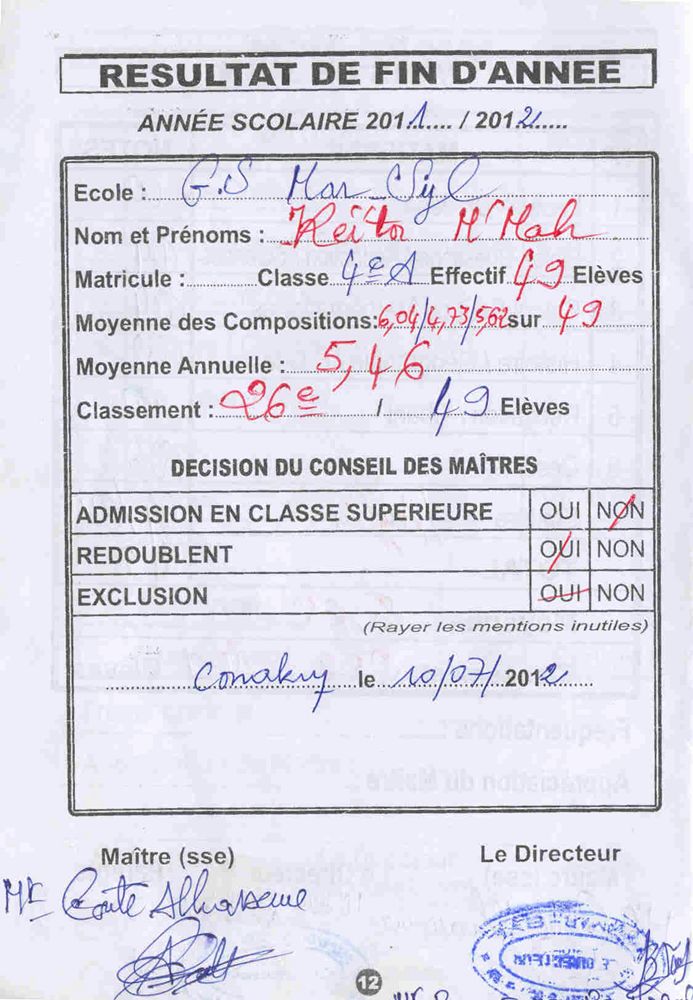 RESULTAT DE FIN D'ANNEE
ANNÉE SCOLAIRE 2011.... / 2012......
Ecole : G.S Mar-Syl
Nom et Prénoms : Keïta M'Mah
Matricule : Classe 4e A Effectif 49 Elèves
Moyenne des Compositions: 6,04/4,73/5,62 sur 49
Moyenne Annuelle : 5,46
Classement : 26e / 49 Elèves
DECISION DU CONSEIL DES MAÎTRES
ADMISSION EN CLASSE SUPERIEURE OUI NON
REDOUBLENT OUI NON
EXCLUSION OUI NON
(Rayer les mentions inutiles)
Conakry le 10/07/2012
Maître (sse) Le Directeur
Mr Conté Alhassane
LE DIRECTEUR
12